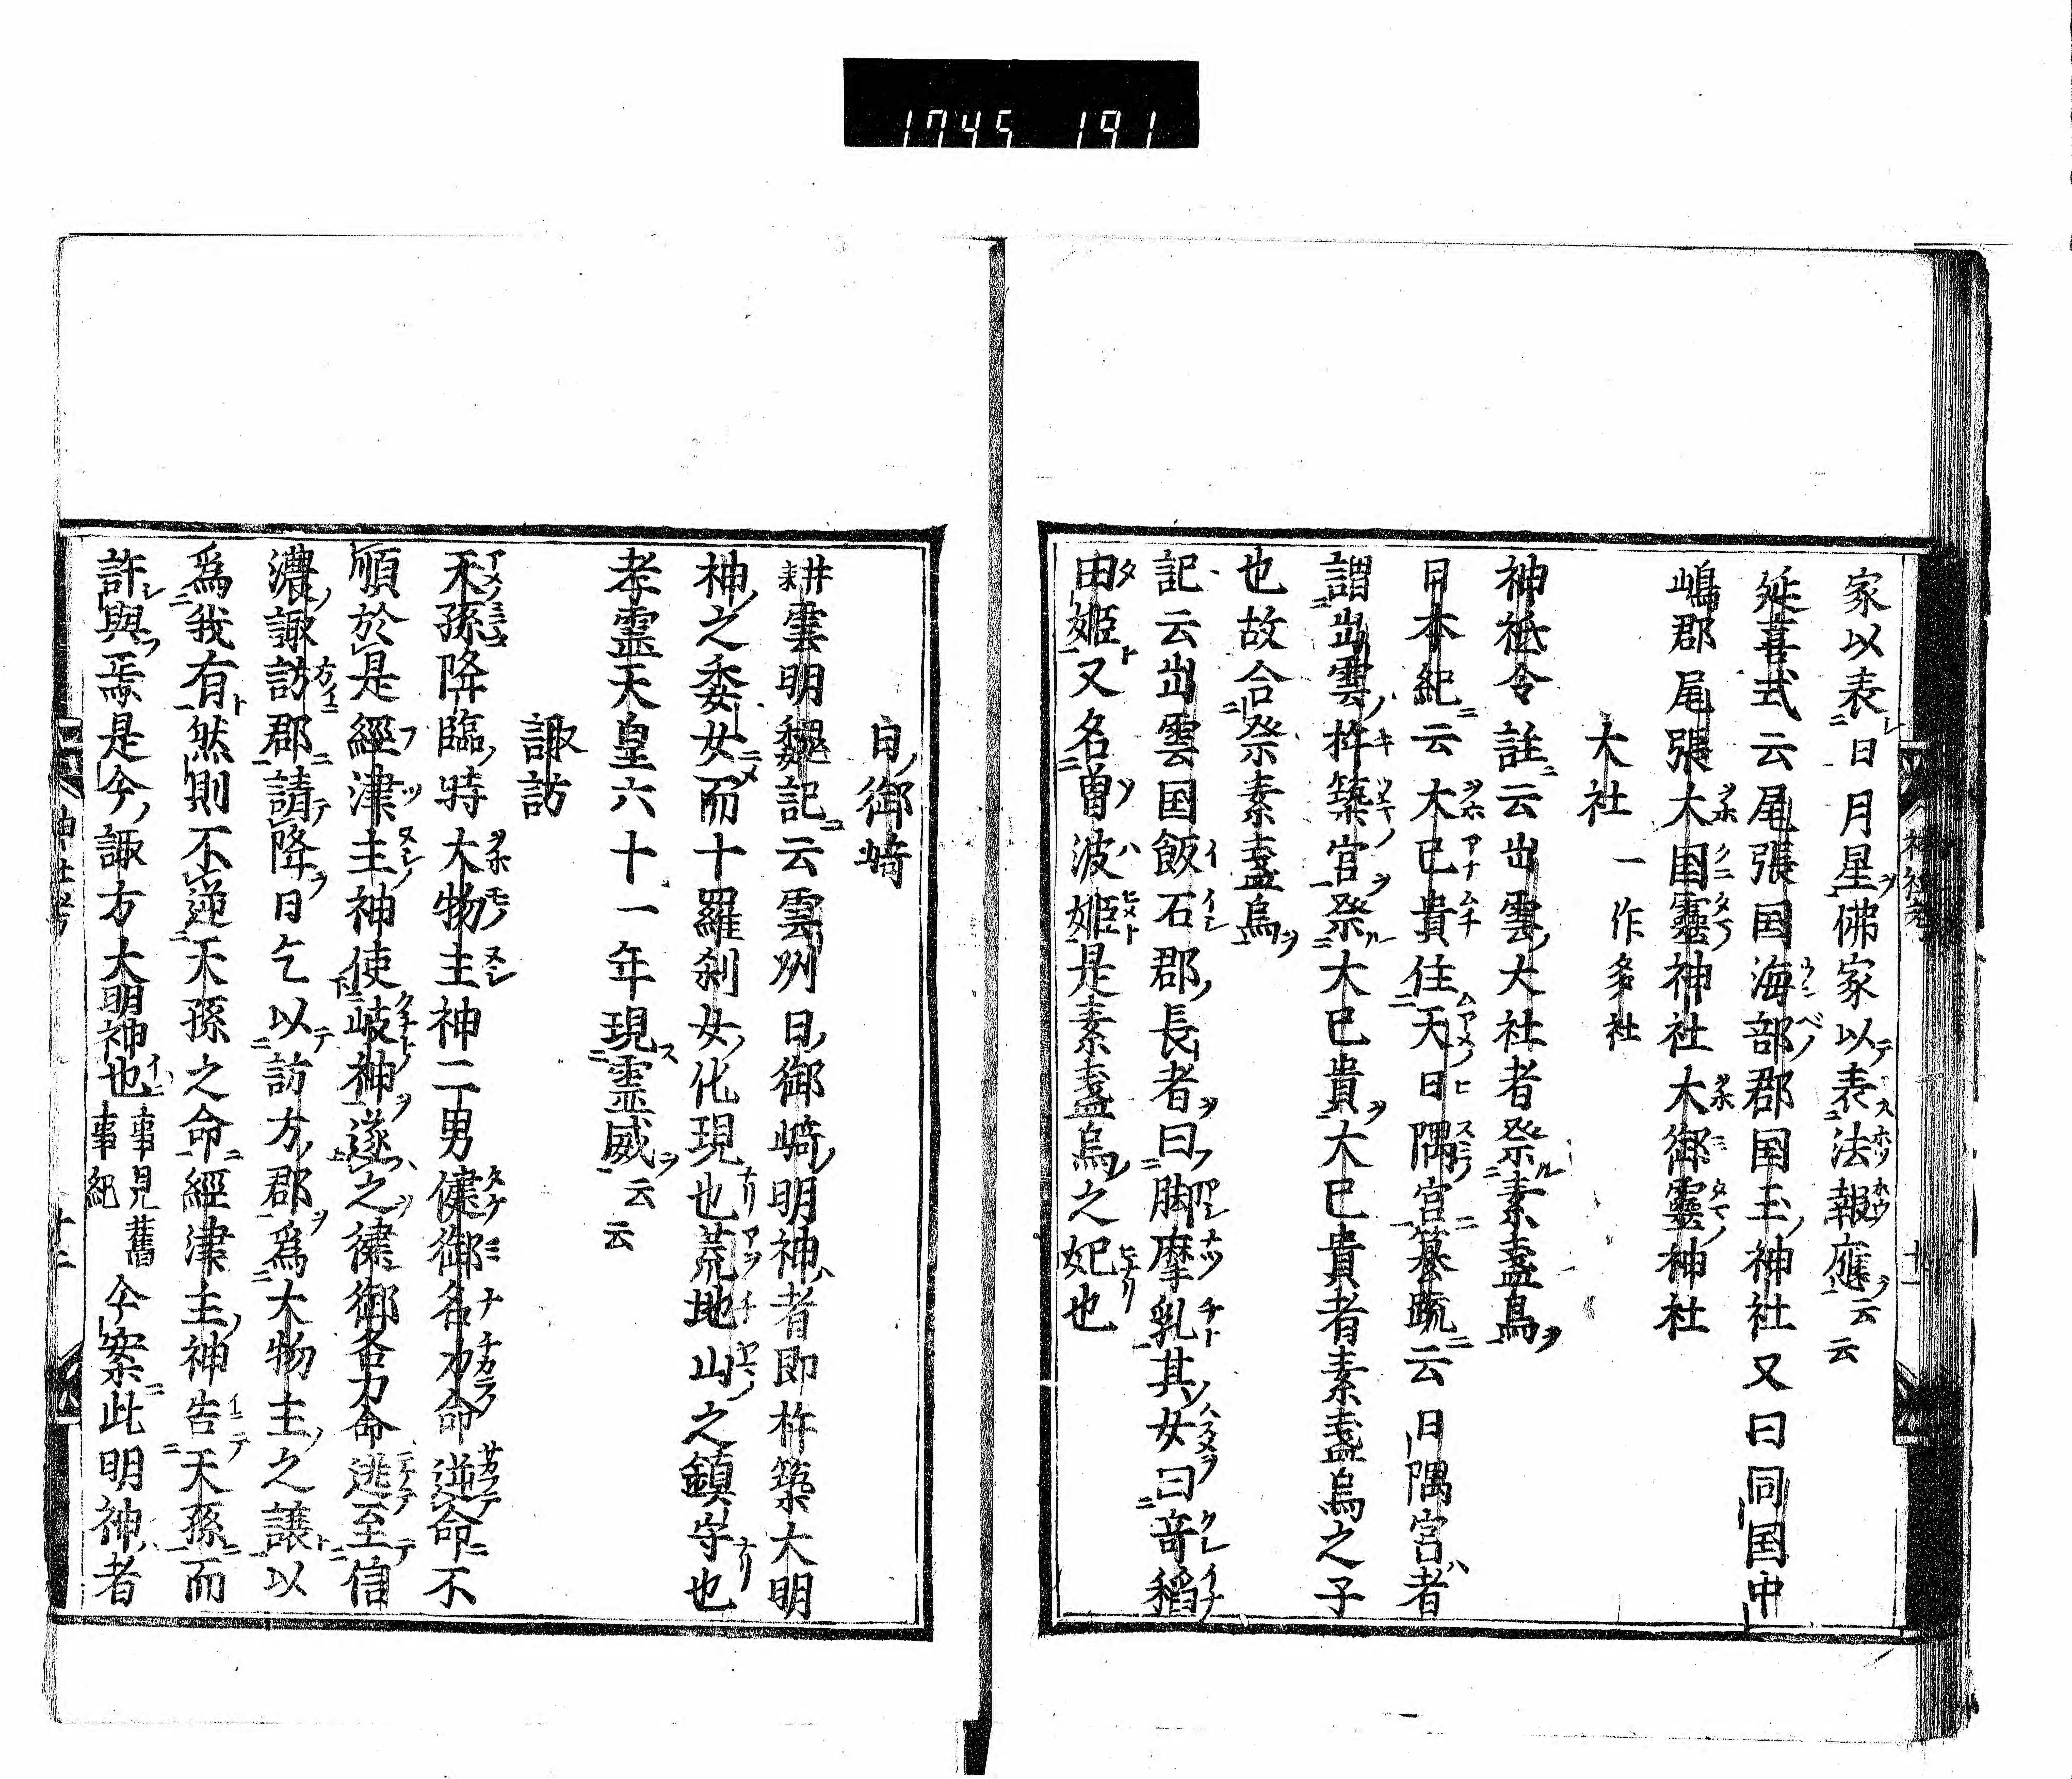 1745 191
家以表日月星佛家以表法報應云云
延喜式云尾張国海部郡国玉神社又曰同国中
嶋郡尾張大国靈神社大御靈神社
大社 一作多社
神祇令註云出雲大社者祭素盞烏
日本紀云大己貴住天日隅宮纂疏云日隅宮者
謂出雲杵築宮祭大己貴大己貴者素盞烏之子
也故合祭素盞烏
記云出雲国飯石郡長者曰脚摩乳其女曰奇稻
田姬又名曽波姬是素盞烏之妃也
日御﨑
耕雲明魏記云雲州日御﨑明神者即杵築大明
神之委女而十羅刹女化現也荒地山之鎮守也
孝霊天皇六十一年現霊威云云
諏訪
天孫降臨時大物主神二男健御名力命逆命不
順於是經津主神使岐神逐之健御名力命逃至信
濃諏訪郡請降日乞以訪方郡爲大物主之讓以
爲我有然則不逆天孫之命經津主神告天孫而
許與焉是今諏方大明神也事見舊事紀今案此明神者
神社考
十二